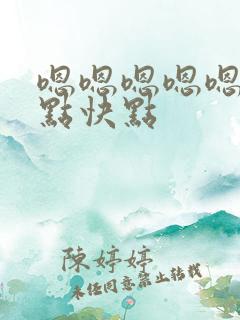 嗯嗯嗯嗯嗯
點快點
陳婷婷
未经同意禁止转载